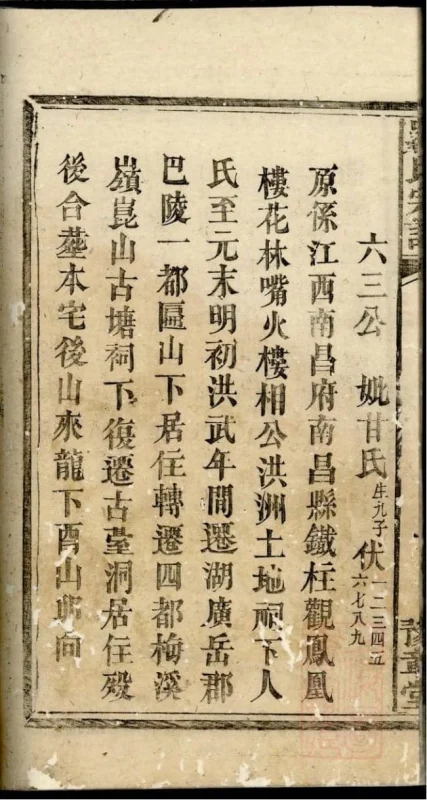 六三公 妣甘氏生九子伏一二三四五六七八九
原係江西南昌府南昌縣鐵柱觀鳳凰
樓花林嘴火樓相公洪洲土地祠下人
氏至元末明初洪武年間遷湖廣岳郡
巴陵一都匾山下居住轉遷四都梅溪
嶺崑山古塘祠下復遷古臺洞居住歿
後合塟本宅後山來龍下酉山卯向
氏宗譜
豫章堂